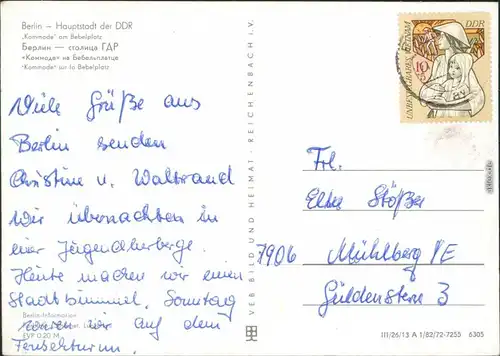 Berlin — Hauptstadt der DDR
„Kommode" am Bebelplatz
Берлин — столица ГДР
«Коммода» на Бебельплатце
"Kommode" sur la Bebelplatz
Viele Grüße aus
Berlin senden
Christine u. Waltraud
Wir übernachten in
einer Jugendherberge.
Heute machen wir einen
Stadtbummel. Sonntag
waren wir auf dem
Fernsehturm.
Berlin-Information
EVP 0,20 M
VEB BILD UND HEIMAT · REICHENBACH i. V.
UNBESIEGBARES VIETNAM
DDR
10
Frl.
Elke Stößer
7906 Mühlberg/E
Güldenstern 3
III/26/13 A 1/82/72-7255 6305